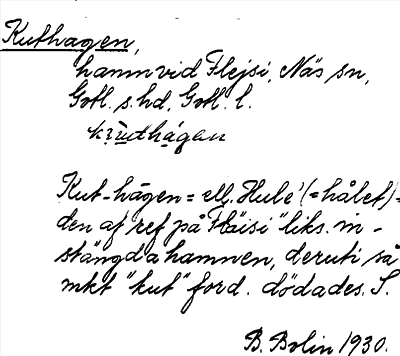 Kuthagen,
hamn vid Flejsi, Näs sn,
Gotl. s. hd, Gotl. l.
kùthágen
Kut-hägen = ell. Hule' (= hålet) =
den af ref på Fläisi "liks. in-
stängda hamnen, deruti så
mkt "kut" ford. dödades. S.
B. Bolin 1930.